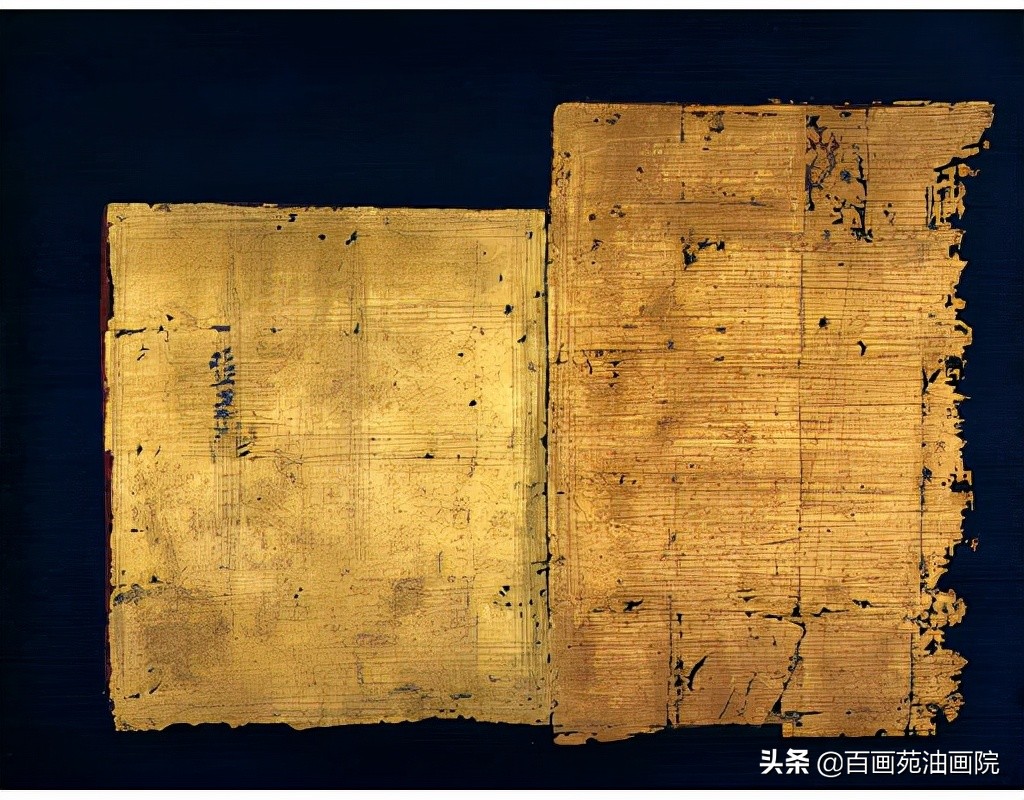 头条 @百画苑油画院